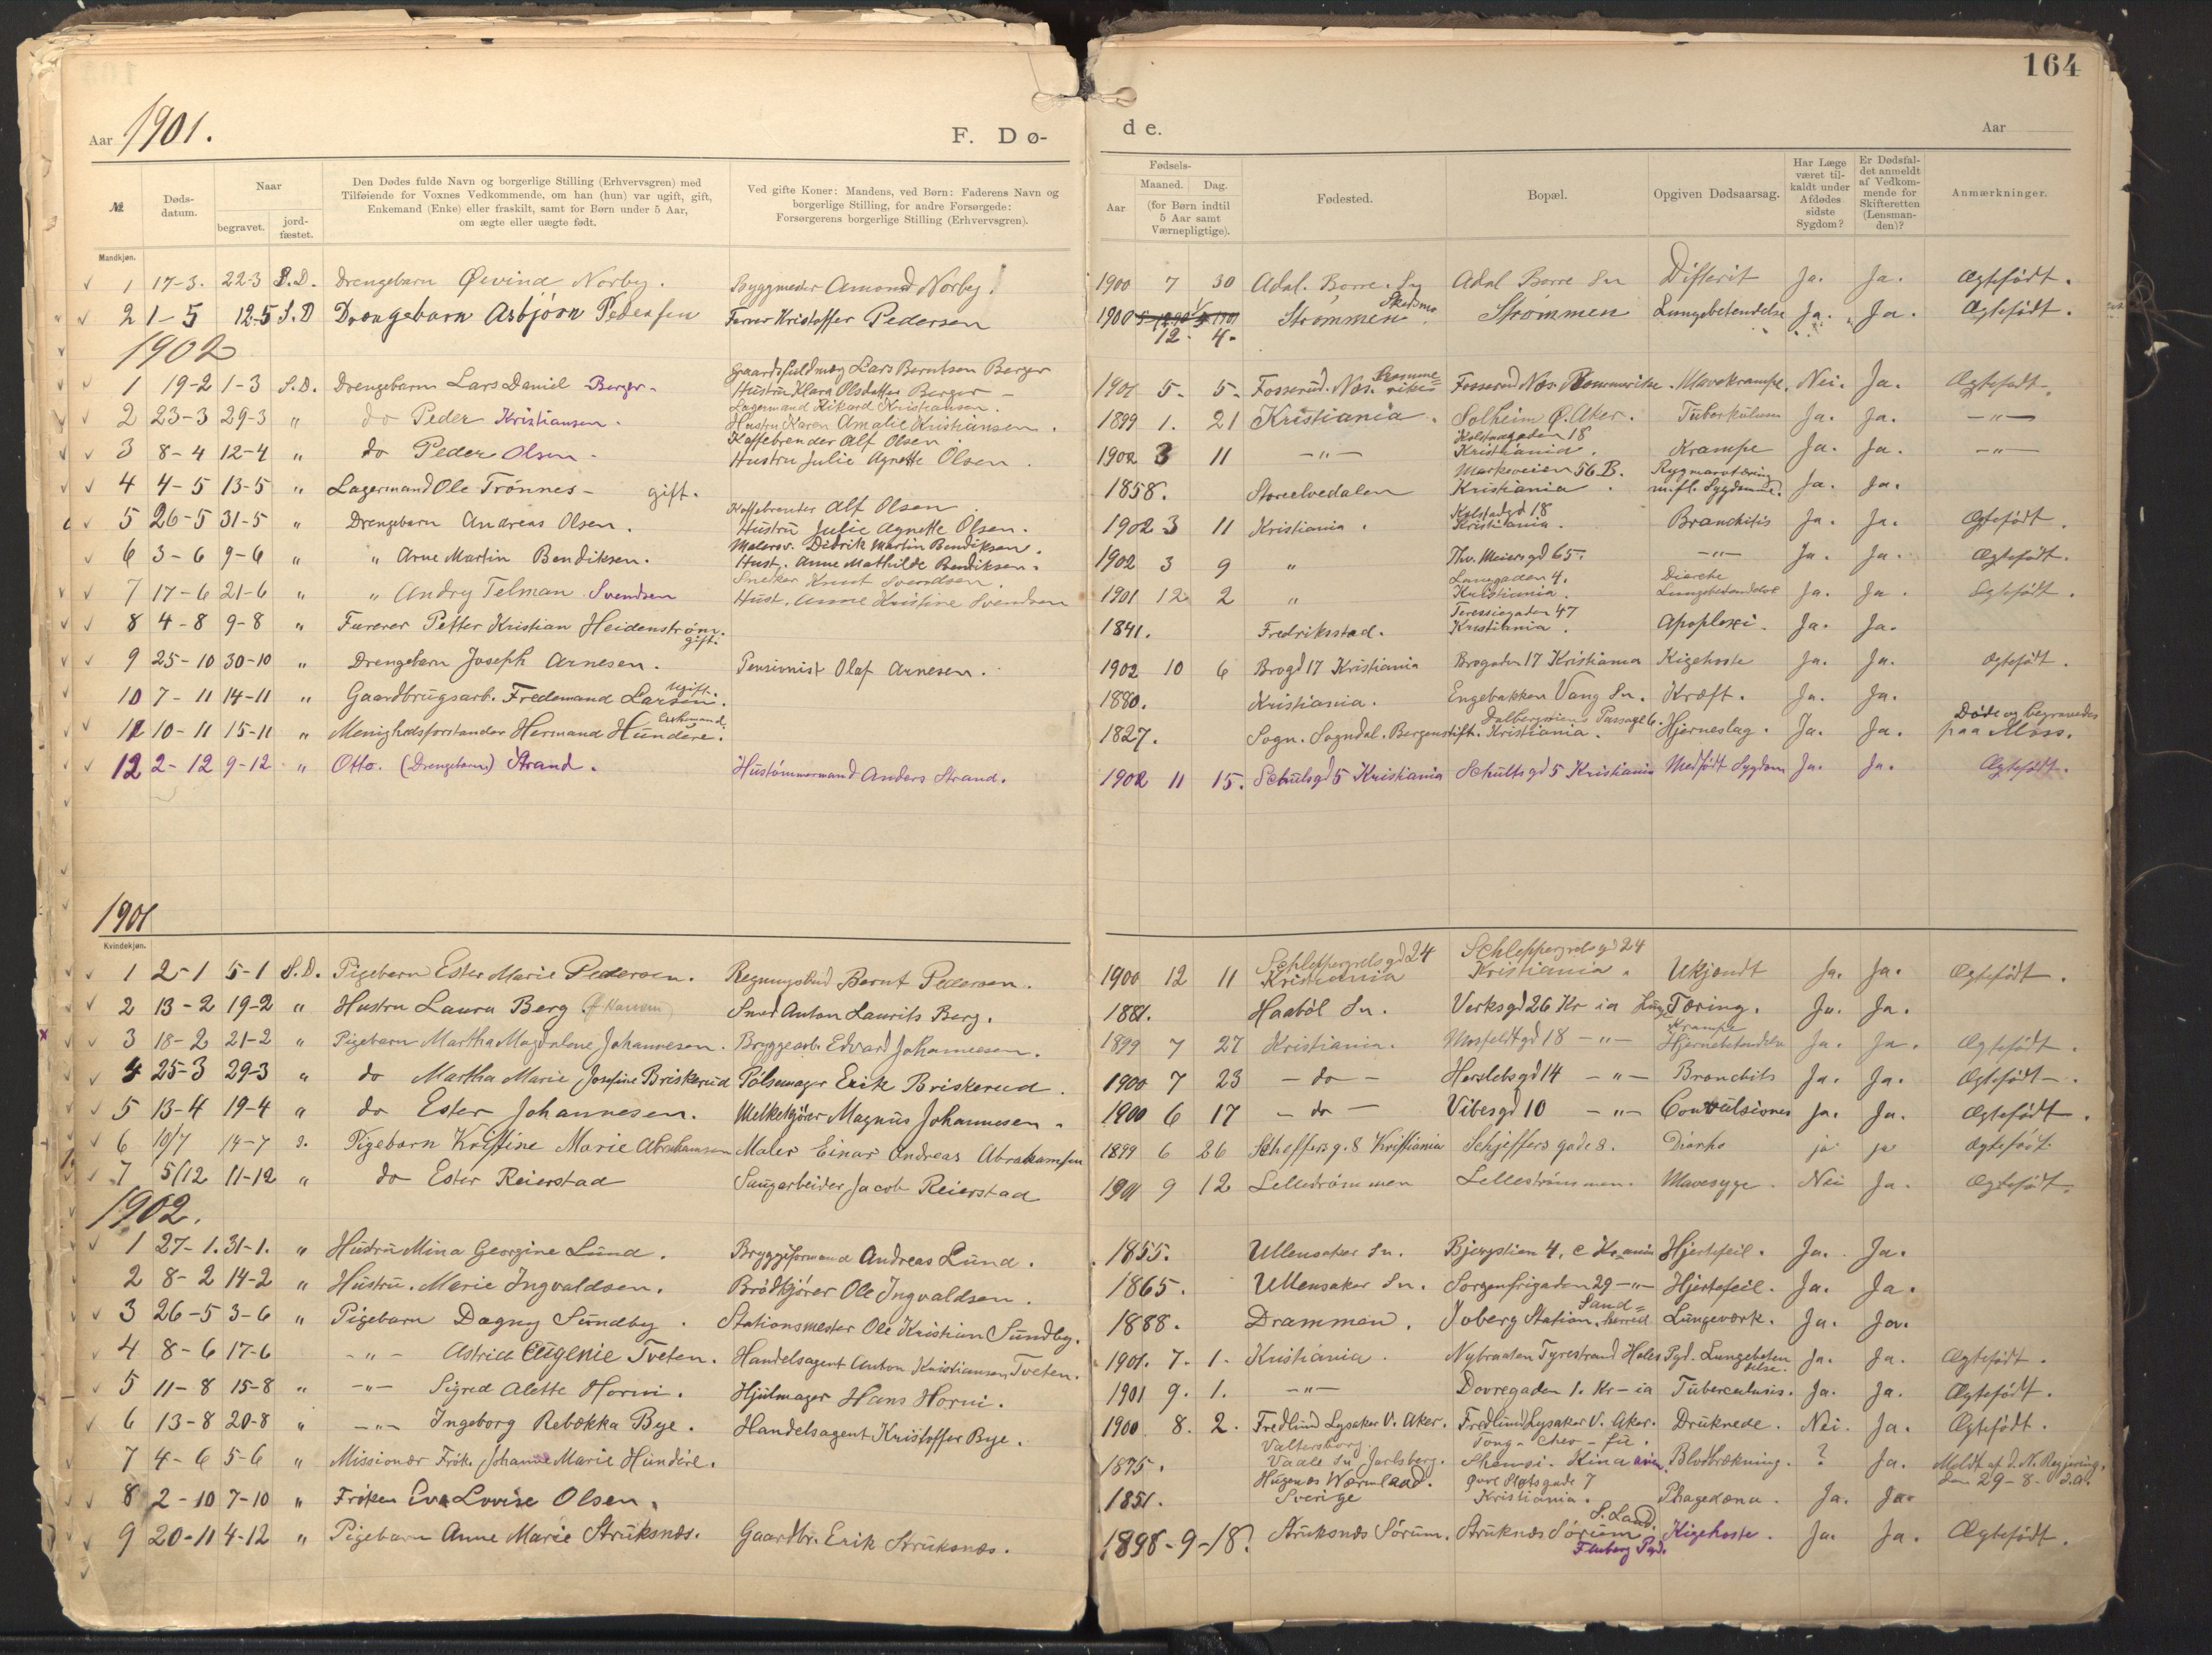 164
Aar 1901. F. Dø-
de. Aar
№ Døds-datum. Naar begravet. jord-fæstet. Den Dødes fulde Navn og borgerlige Stilling (Erhvervsgren) med Tilføiende for Voxnes Vedkommende, om han (hun) var ugift, gift, Enkemand (Enke) eller fraskilt, samt for Børn under 5 Aar, om ægte eller uægte født. Ved gifte Koner: Mandens, ved Børn: Faderens Navn og borgerlige Stilling, for andre Forsørgede: Forsørgerens borgerlige Stilling (Erhvervsgren).
Aar Fødsels- Maaned. Dag. (for Børn indtil 5 Aar samt Værnepligtige). Fødested. Bopæl. Opgiven Dødsaarsag. Har Læge været til-kaldt under Afdødes sidste Sygdom? Er Dødsfal-det anmeldt af Vedkom-mende for Skifteretten (Lensman-den)? Anmærkninger.
Mandkjøn.
1 17-3. 22-3 S.D. Drengebarn Øivind Norby. Byggmester Amond Norby. 1900 7 30 Adal. Borre. Sn Adal Borre Sn Difterit Ja. Ja. Ægtefødt.
2 1-5 12-5 S.D Drengebarn Asbjörn Pedersen Farver Kristoffer Pedersen 1900 12. 4. Strømmen Skedsmo. Strømmen Lungebetendelse Ja. Ja. Ægtefødt.
1902
1 19-2 1-3 S.D. Drengebarn Lars Daniel Berger. Gaardsfuldmæg Lars Berntsen Berger Hustru Klara Olsdatter Berger 1901 5. 5. Fosserud. Næs. Romme=rike= Fosserud Næs. Rommerike. Mavekrampe. Nei. Ja. Ægtefødt.
2 23-3 29-3 " do Peder Kristiansen. Lagermand Rikard Kristiansen. Hustru Karen Amalie Kristiansen. 1899 1. 21 Kristiania. Solheim Ø. Aker. Tuberkulum Ja. Ja. -"-
3 8-4 12-4 " do Peder Olsen. Kaffebrender Alf Olsen. Hustru Julie Agnette Olsen. 1902 3 11 -"- Kolstadgaden 18 Kristiania. Krampe Ja. Ja. -"-
4 4-5 13-5 " Lagermand Ole Trønnes - gift. 1858. Storelvedalen Markveien 56 B. Kristiania. Rygmarvstæring m.fl. Sygdomme. Ja. Ja.
5 26-5 31-5 " Drengebarn Andreas Olsen. Kaffebrender Alf Olsen Hustru Julie Agnette Olsen. 1902 3 11 Kristiania. Kolstadgd 18 Kristiania. Bronchitis Ja. Ja. Ægtefødt.
6 3-6 9-6 " " Arne Martin Bendiksen. Malersv. Didrik Martin Bendiksen. Hust. Anne Mathilde Bendiksen. 1902 3 9 " Thv. Meiersgd 65. -"- Ja. Ja. Ægtefødt.
7 17-6 21-6 " " Andry Telman Svendsen Snekker Knut Svendsen. Hust. Anne Kristine Svendsen 1901 12 2 " Kristiania. Ja. Ja. Ægtefødt.
8 4-8 9-8 " Furerer Petter Kristian Heidenstrøm. gift. 1841. Fredriksstad. Teressiegaden 47 Kristiania. Apoplexi. Ja. Ja.
9 25-10 30-10 " Drengebarn Joseph Arnesen. Pensionist Olaf Arnesen. 1902 10 6 Brogd 17 Kristiania Brogaden 17 Kristiania Kigehoste Ja. Ja. Ægtefødt.
10 7-11 14-11 " Gaardbrugsarb. Fredemand Larsen. Ugift. 1880. Kristiania. Engebakken Vang Sn. Kræft. Ja. Ja.
11 10-11 15-11 " Menighedsforstander Hermand Hundere. Enkemand. 1827. Sogn. Sogndal. Bergenstift. Dalbergstiens Passage 6. Kristiania. Hjerneslag. Ja. Ja. Døde og begravedes paa Moss.
12 2-12 9-12 " Otto. (Drengebarn) Strand. Hustømmermand Anders Strand. 1902 11 15. Schultsgd 5 Kristiania Schultsgd 5 Kristiania Medfødt Sygdom Ja. Ja. Ægtefødt.
1901
Kvindekjøn.
1 2-1 5-1 S.D. Pigebarn Ester Marie Pedersen. Regningsbud Bernt Pedersen. 1900 12 11 Schleppegrelsgd 24 Kristiania Schleppegrelsgd 24 Kristiania. Ukjendt Ja. Ja. Ægtefødt.
2 13-2 19-2 " Hustru Laura Berg Smed Anton Laurits Berg. 1881. Haabøl Sn. Verksgd 26 Kr-ia Lunge Tæring. Ja. Ja.
3 18-2 21-2 " Pigebarn Martha Magdalene Johannesen. Bryggearb. Edvard Johannesen. 1899 7 27 Kristiania. Mosfeldtgd 18 -"- Krampe Hjernebetendelse Ja. Ja. Ægtefødt.
4 25-3 29-3 " do Martha Marie Josefine Briskerud Pølsemager Erik Briskerud. 1900 7 23 -do- Herslebsgd 14 -"- Bronchits Ja. Ja. Ægtefødt.
5 13-4 19-4 " do Ester Johannesen. Melkekjører Magnus Johannesen. 1900 6 17 -do- Vibesgd 10 -"- Convulsiones Ja. Ja. Ægtefødt.
6 10/7 14-7 Pigebarn Kristine Marie Abrahamsen Maler Einar Andreas Abrahamsen 1899 6 26 Scheffersg. 8 Kristiania Schjeffers gade 8. Diarhe ja ja Ægtefødt
7 5/12 11-12 " do Ester Reierstad Saugarbeider Jacob Reierstad 1901 9 12 Lellestrømmen Lellestrømmen. Mavesyge. Nei Ja. Ægtefødt.
1902.
1 27-1. 31-1. " Hustru Mina Georgine Lund. Bryggeformand Andreas Lund. 1855. Ullensaker Sn. Bjergstien 4, Hjertefeil. Ja. Ja.
2 8-2 14-2 " Hustru. Marie Ingvaldsen. Brødkjører Ole Ingvaldsen. 1865. Ullensaker Sn. Sorgenfrigaden 29 -"- Hjertefeil. Ja. Ja.
3 26-5 3-6 " Pigebarn Dagny Sundby. Stationsmester Ole Kristian Sundby. 1888. Drammen. Joberg Station. Sand=herred Lungeværk. Ja. Ja.
4 8-6 17-6 -"- Astrid Eugenie Tveten. Handelsagent Anton Kristiansen Tveten. 1901. 7. 1. Kristiania. Nybraaten Tyrestrand Holes Pgd. Lungebetendelse. Ja. Ja. Ægtefødt.
5 11-8 15-8 " -"- Sigred Alette Horni. Hjulmager Hans Horni. 1901 9. 1. -"- Dovregaden 1. Kr-ia Tuberculusis. Ja. Ja. Ægtefødt.
6 13-8 20-8 " -"- Ingeborg Rebekka Bye. Handelsagent Kristoffer Bye. 1900 8. 2. Fredlund Lysaker V. Aker. Fredlund Lysaker V. Aker. Druknede. Nei. Ja. Ægtefødt.
7 4-6 5-6 " Missionær Frøk. Johanne Marie Hundere. 1875. Valtersborg. Vaale Sn Jarlsberg. Tong-cheo-fu. Shamsi. Kina Blodbrækning. ? Ja. Meldt af d. N. Regjering, den 29-8- d.a.
8 2-10 7-10 " Frøken Eva Lovise Olsen. 1851. Wærmland. Sverige Øvre Slotsgade 7 Kristiania. Phagedæna. Ja. Ja.
9 20-11 4-12 " Pigebarn Anne Marie Struksnæs. Gaardbr. Erik Struksnæs. 1898-9-18. Struksnæs Sørum. Struknæs Sørum S. Land. Fluberg Pgd. Kigehoste. Ja. Ja. Ægtefødt.